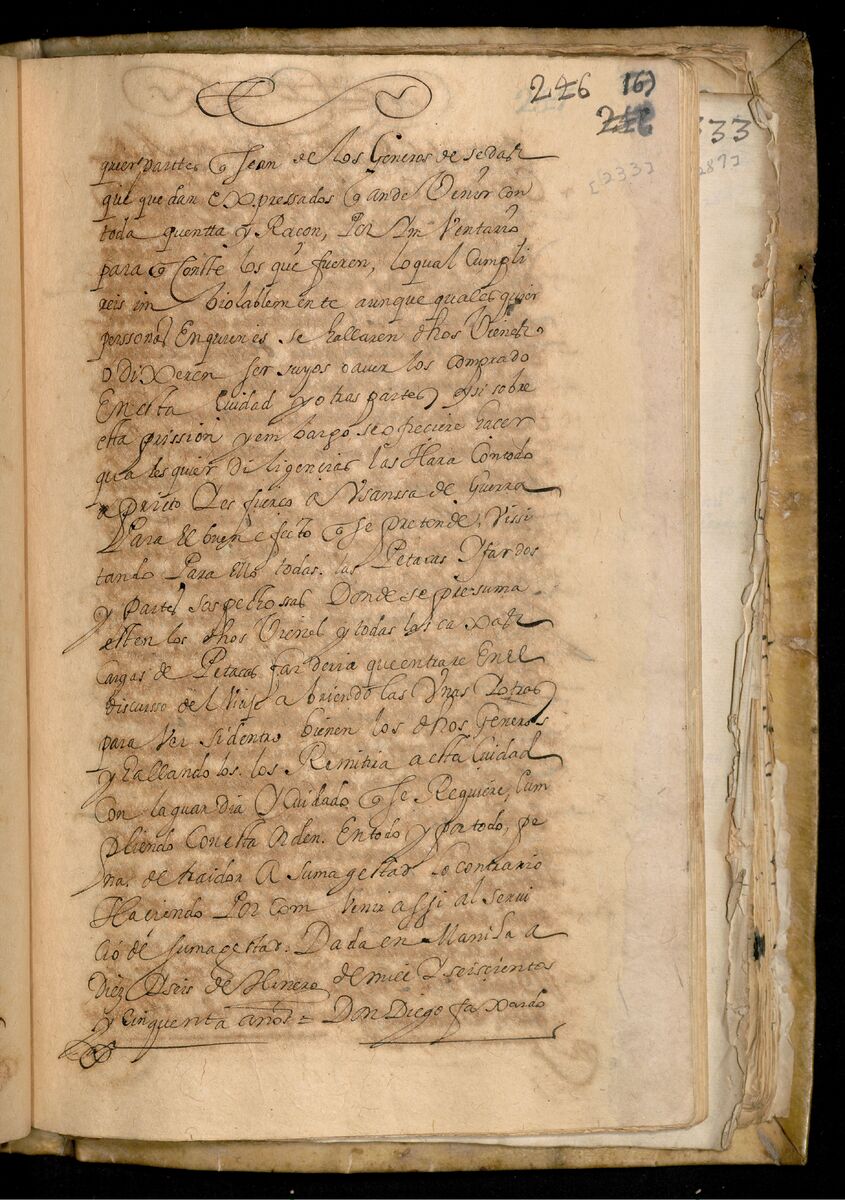 246 16)
246
333
[233]
287]
quier partes q sean de los Generos de sedas
que quedan expressados q ande Venir con
toda quentta y Racon, Por Ynventario
para q Conste los que fueren, lo qual Cumpli
reis im biolablemente aunque quales quier
perssonas En quienes se hallaren dhos Vienes
o dixeren ser suyos o aver los comprado
En esta Ciudad y otras partes, y si sobre
esta prission y em bargo se ofreciere hacer
qua les quier Diligencias las Hara Con todo
a prieto Y es fuerço a Vsanssa de Guerra
Para El buen efecto q se pretende, Vissi
tando Para Ello todas las Petacas Y fardos
y Partes sospechossas Donde se pressuma
esten los dhos Vienes y todas las ca xas
Cargas de Petacas farderia que entrare En el
discursso del Viaje a briendo las Vnas Y otras
para Ver si dentro bienen los dhos Generos
y hallando los. los Remitira a esta Ciudad
Con la guardia Y Cuidado q se Requiere, Cum
pliendo Con esta orden. En todo y por todo, pe
na. de traidor A su magestad lo contrario
Haciendo Por Com benir assi al servi
cio de su magestad. Dada en Manila a
Diez Y seis de Henero de mill Y seiscientos
y cinquenta años = Don Diego faxardo